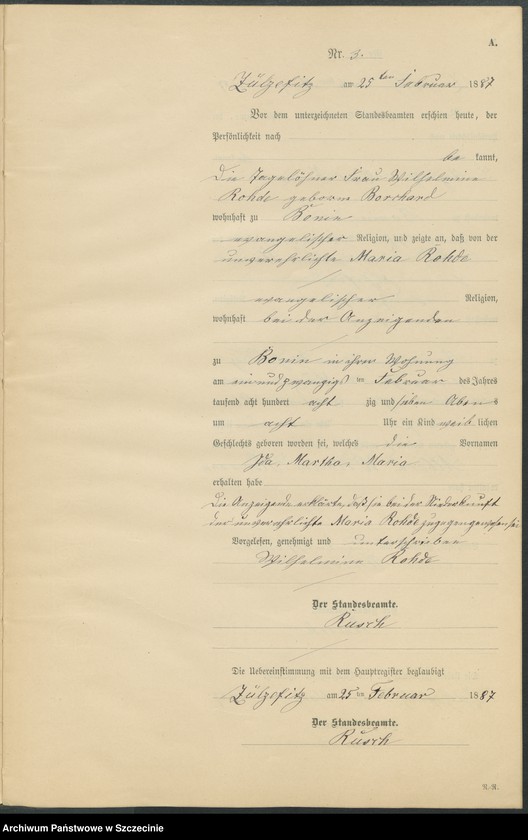 A.
Nr. 3.
Zülzefitz am 25ten Februar 1887
Vor dem unterzeichneten Standesbeamten erschien heute, der
Persönlichkeit nach
be kannt,
die Tagelöhner Frau Wilhelmine
Rohde geborne Borchard
wohnhaft zu Bonin
evangelischer Religion, und zeigte an, daß von der
unverehelichte Maria Rohde
evangelischer Religion,
wohnhaft bei der Anzeigenden
zu Bonin in ihrer Wohnung
am einundzwanzigs ten Februar des Jahres
tausend acht hundert acht zig und sieben Abends
um acht Uhr ein Kind weib lichen
Geschlechts geboren worden sei, welches die Vornamen
Ida, Martha, Maria
erhalten habe
die Anzeigende erklärte, daß sie bei der Niederkunft
der unverehelichte Maria Rohde zugegen gewesen sei
Vorgelesen, genehmigt und unterschrieben
Wilhelmine Rohde
Der Standesbeamte.
Rusch
Die Uebereinstimmung mit dem Hauptregister beglaubigt
Zülzefitz am 25 ten Februar 1887
Der Standesbeamte.
Rusch
Archiwum Państwowe w Szczecinie